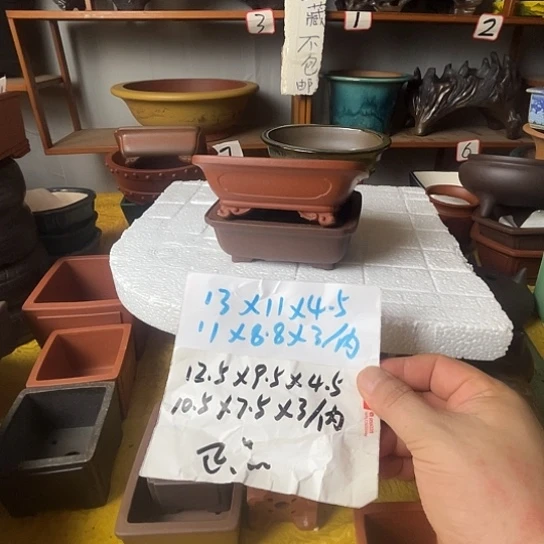 3
1
2
藏
不
包
邮
7
6
13×11×4.5
11×8.8×3/内
12.5×9.5×4.5
10.5×7.5×3/内